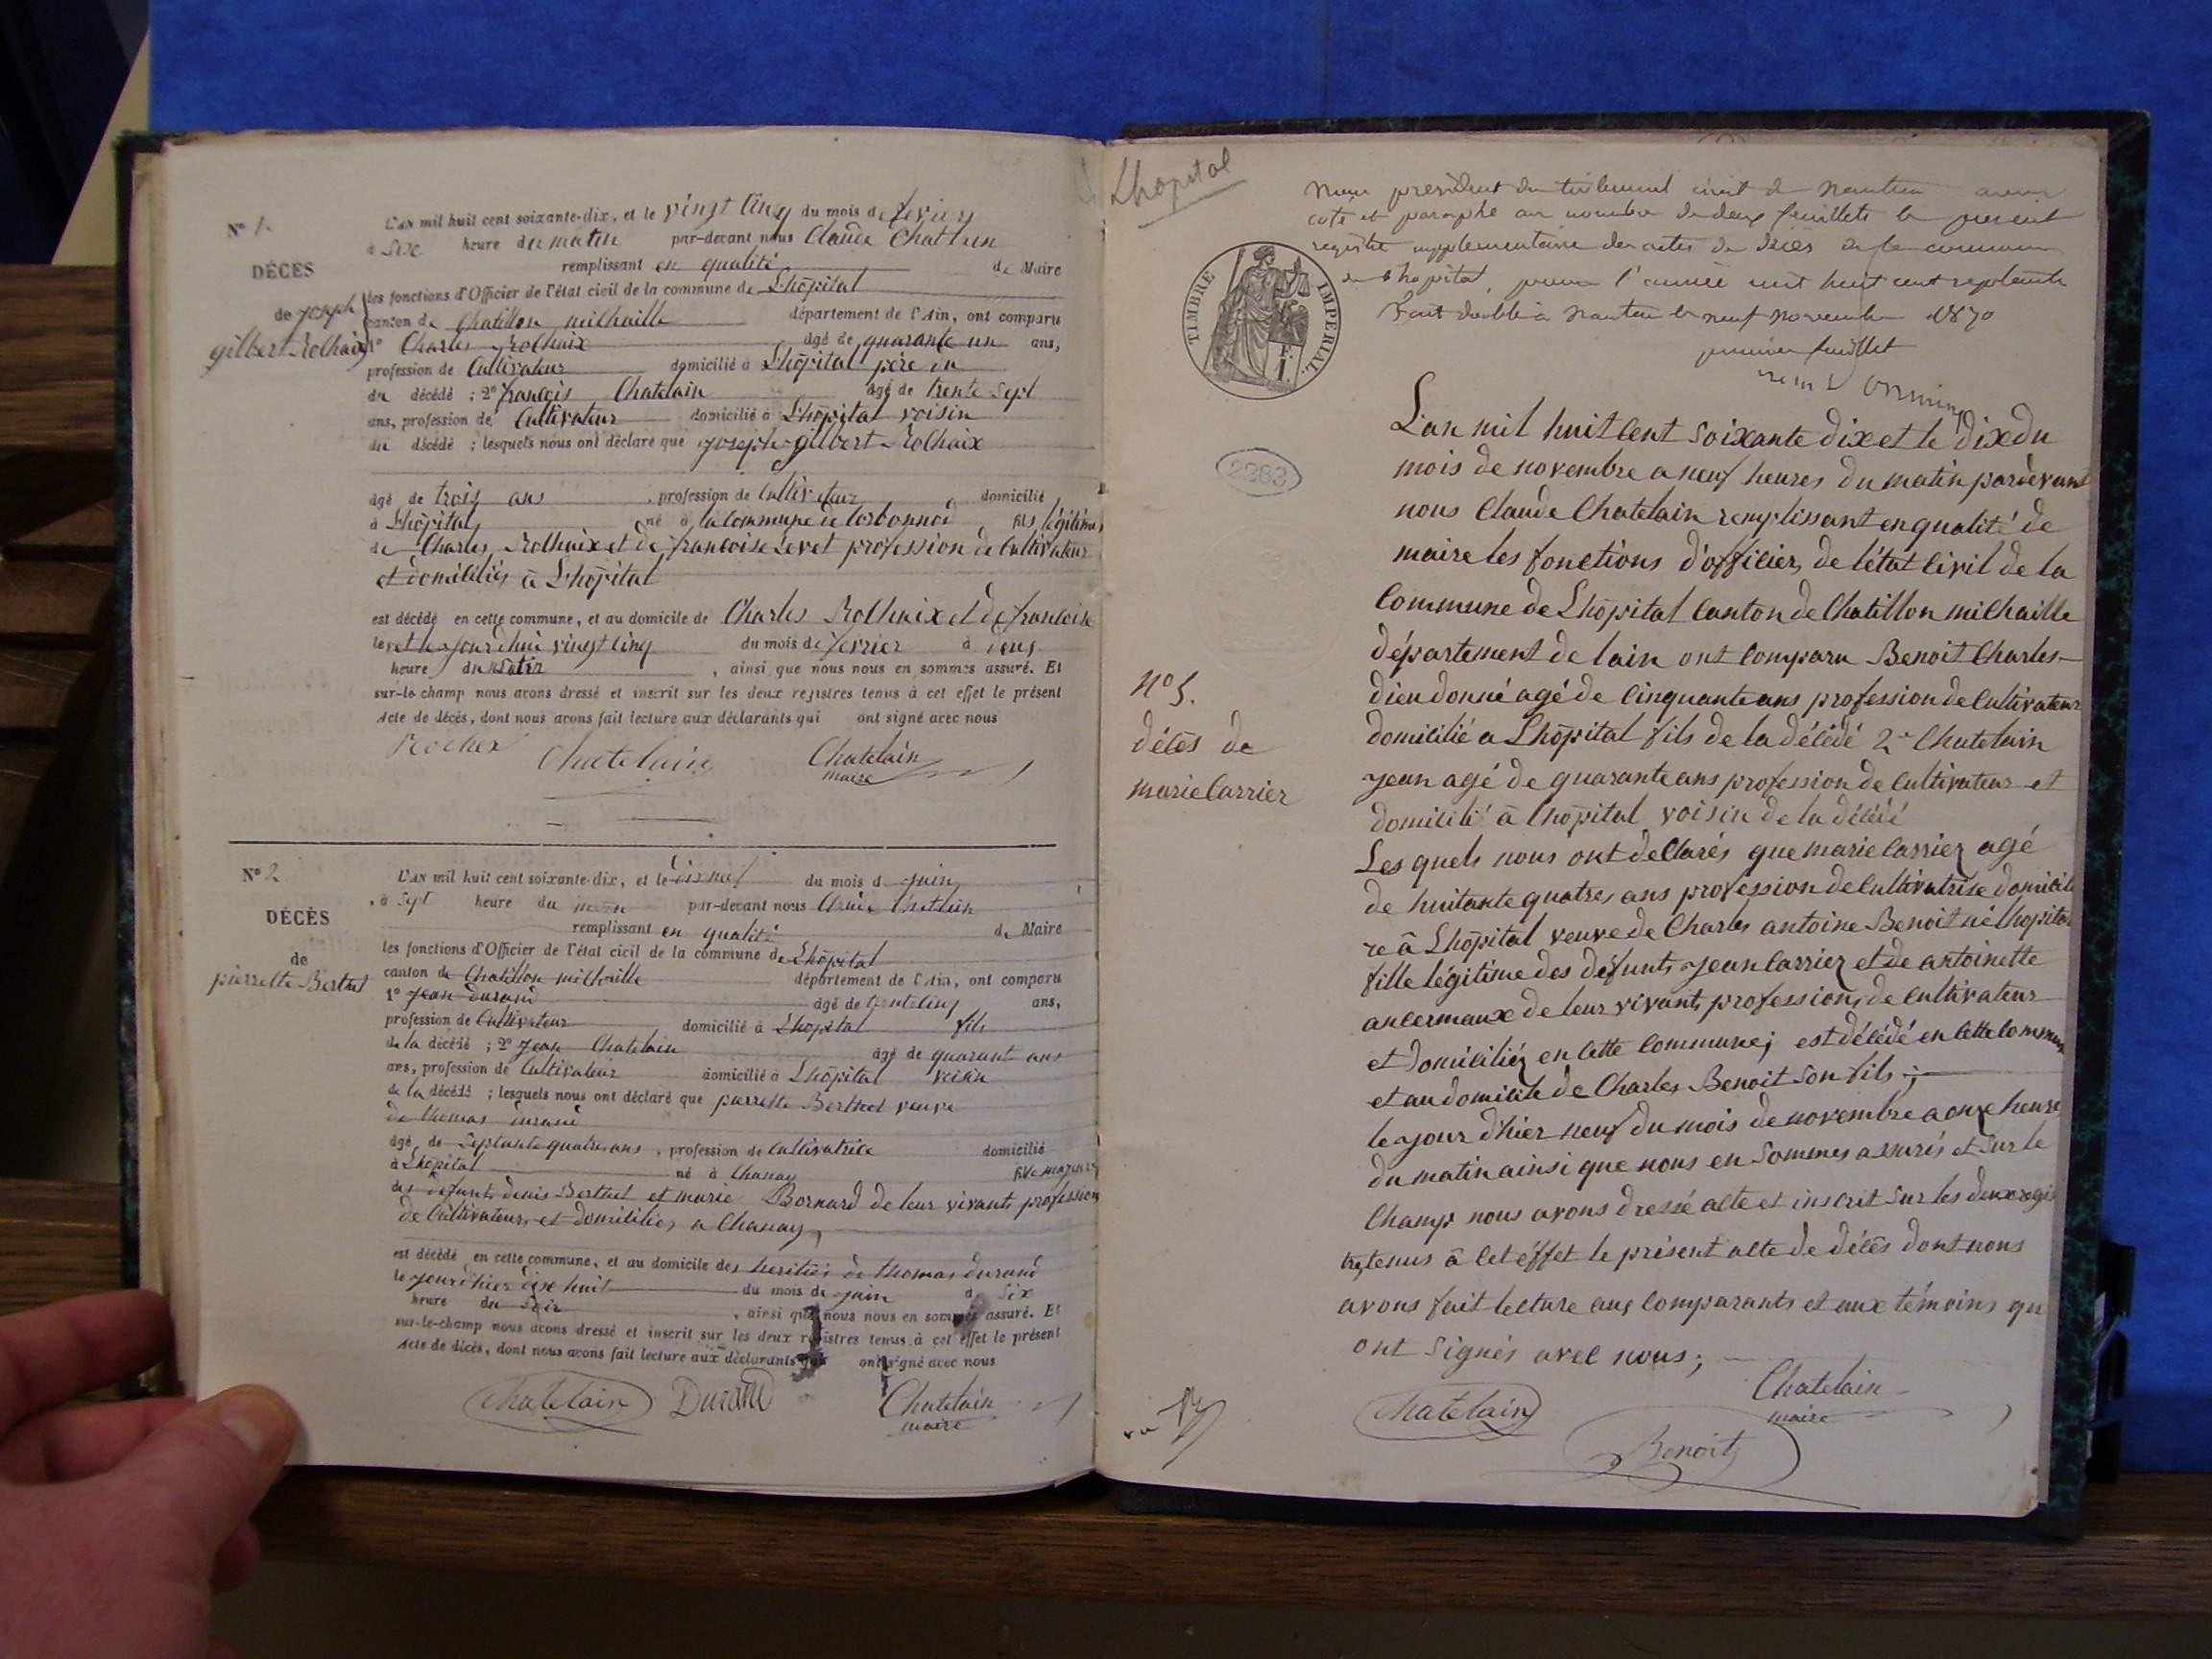 N° 1.
DÉCÈS
de joseph
gilbert Rolhaix
L'AN mil huit cent soixante-dix, et le vingt cinq du mois de fevrier
à six heure du matin par-devant nous Claude Chatelain
remplissant en qualité de Maire
les fonctions d'Officier de l'état civil de la commune de Lhôpital
canton de Chatillon milhaille département de l'Ain, ont comparu
1° Charles Rolhaix âgé de quarante un ans,
profession de Cultivateur domicilié à Lhôpital père du
du décédé ; 2° françois Chatelain âgé de trente sept
ans, profession de Cultivateur domicilié à Lhôpital voisin
du décédé ; lesquels nous ont déclaré que joseph gilbert Rolhaix
âgé de trois ans , profession de Cultivateur domicilié
à Lhôpital né à la commune de Corbonnod fils légitime
de Charles Rolhaix et de francoise Levet profession de Cultivateur
et domiciliés à Lhôpital
est décédé en cette commune, et au domicile de Charles Rolhaix et de francoise
levet le jourdhui vingt cinq du mois de fevrier à deux
heure du matin , ainsi que nous nous en sommes assuré. Et
sur-le-champ nous avons dressé et inscrit sur les deux registres tenus à cet effet le présent
Acte de décès, dont nous avons fait lecture aux déclarants qui ont signé avec nous
Chatelain
Chatelain
maire
N° 2
DÉCÈS
de
pierrette Berthet
L'AN mil huit cent soixante-dix, et le dixneuf du mois d juin
à sept heure du matin par-devant nous Claude Chatelain
remplissant en qualité de Maire
les fonctions d'Officier de l'état civil de la commune de Lhôpital
canton de Chatillon milhaille département de l'Ain, ont comparu
1° jean durand âgé de trente cinq ans,
profession de Cultivateur domicilié à Lhopital fils
de la décédé ; 2° jean Chatelain âgé de quarante ans
ans, profession de Cultivateur domicilié à Lhôpital voisin
de la décédé ; lesquels nous ont déclaré que pierrette Berthet veuve
de thomas durand
âgé de Septante quatre ans , profession de Cultivatrice domicilié
à Lhôpital né à Chanay fille
des defunts denis Berthet et marie Bornard de leur vivants profession
de Cultivateurs et domiciliés a Chanay
est décédé en cette commune, et au domicile des heritiés de thomas durand
le jour dhier dixe huit du mois de juin à six
heure du soir , ainsi que nous nous en sommes assuré. Et
sur-le-champ nous avons dressé et inscrit sur les deux registres tenus à cet effet le présent
Acte de décès, dont nous avons fait lecture aux déclarants qui ont signé avec nous
Chatelain Durand Chatelain
maire
Lhopital
Nous président du tribunal civil de Nantua avons
coté et paraphé au nombre de deux feuillets le présent
registre supplementaire des actes de décès de la commune
de Lhopital, pour l'année mil huit cent septante
Fait double à Nantua le neuf novembre 1870
premier feuillet
TIMBRE IMPERIAL
1 F.
2283
N° 5.
décès de
marie Carrier
L'an mil huit cent soixante dix et le dix du
mois de novembre a neuf heures du matin pardevant
nous Claude Chatelain remplissant en qualité de
maire les fonctions d'officier de l'état civil de la
Commune de Lhôpital Canton de Chatillon milhaille
département de lain ont comparu Benoit Charles
dieudonné agé de cinquante ans profession de Cultivateur
domicilié a Lhôpital fils de la décédé 2° Chatelain
jean agé de quarante ans profession de cultivateur et
domicilié à lhôpital voisin de la décédé
Les quels nous ont declarés que marie Carrier agé
de huitante quatres ans profession de Cultivatrise domicilié
re â Lhôpital veuve de Charles antoine Benoit né lhopital
fille légitime des défunts jean Carrier et de antoinette
ancermaux de leur vivants professions de cultivateur
et domiciliés en cette commune; est décédé en cette commune
et au domicile de Charles Benoit son fils ;
le jour dhier neuf du mois de novembre a onze heures
du matin ainsi que nous en sommes assurés et sur le
Champ nous avons dressé acte et inscrit sur les deux regis
tres tenus â cet éffet le présent acte de décès dont nous
avons fait lecture aux comparants et aux témoins qui
ont signés avec nous ;
Chatelain Chatelain
maire
Benoit